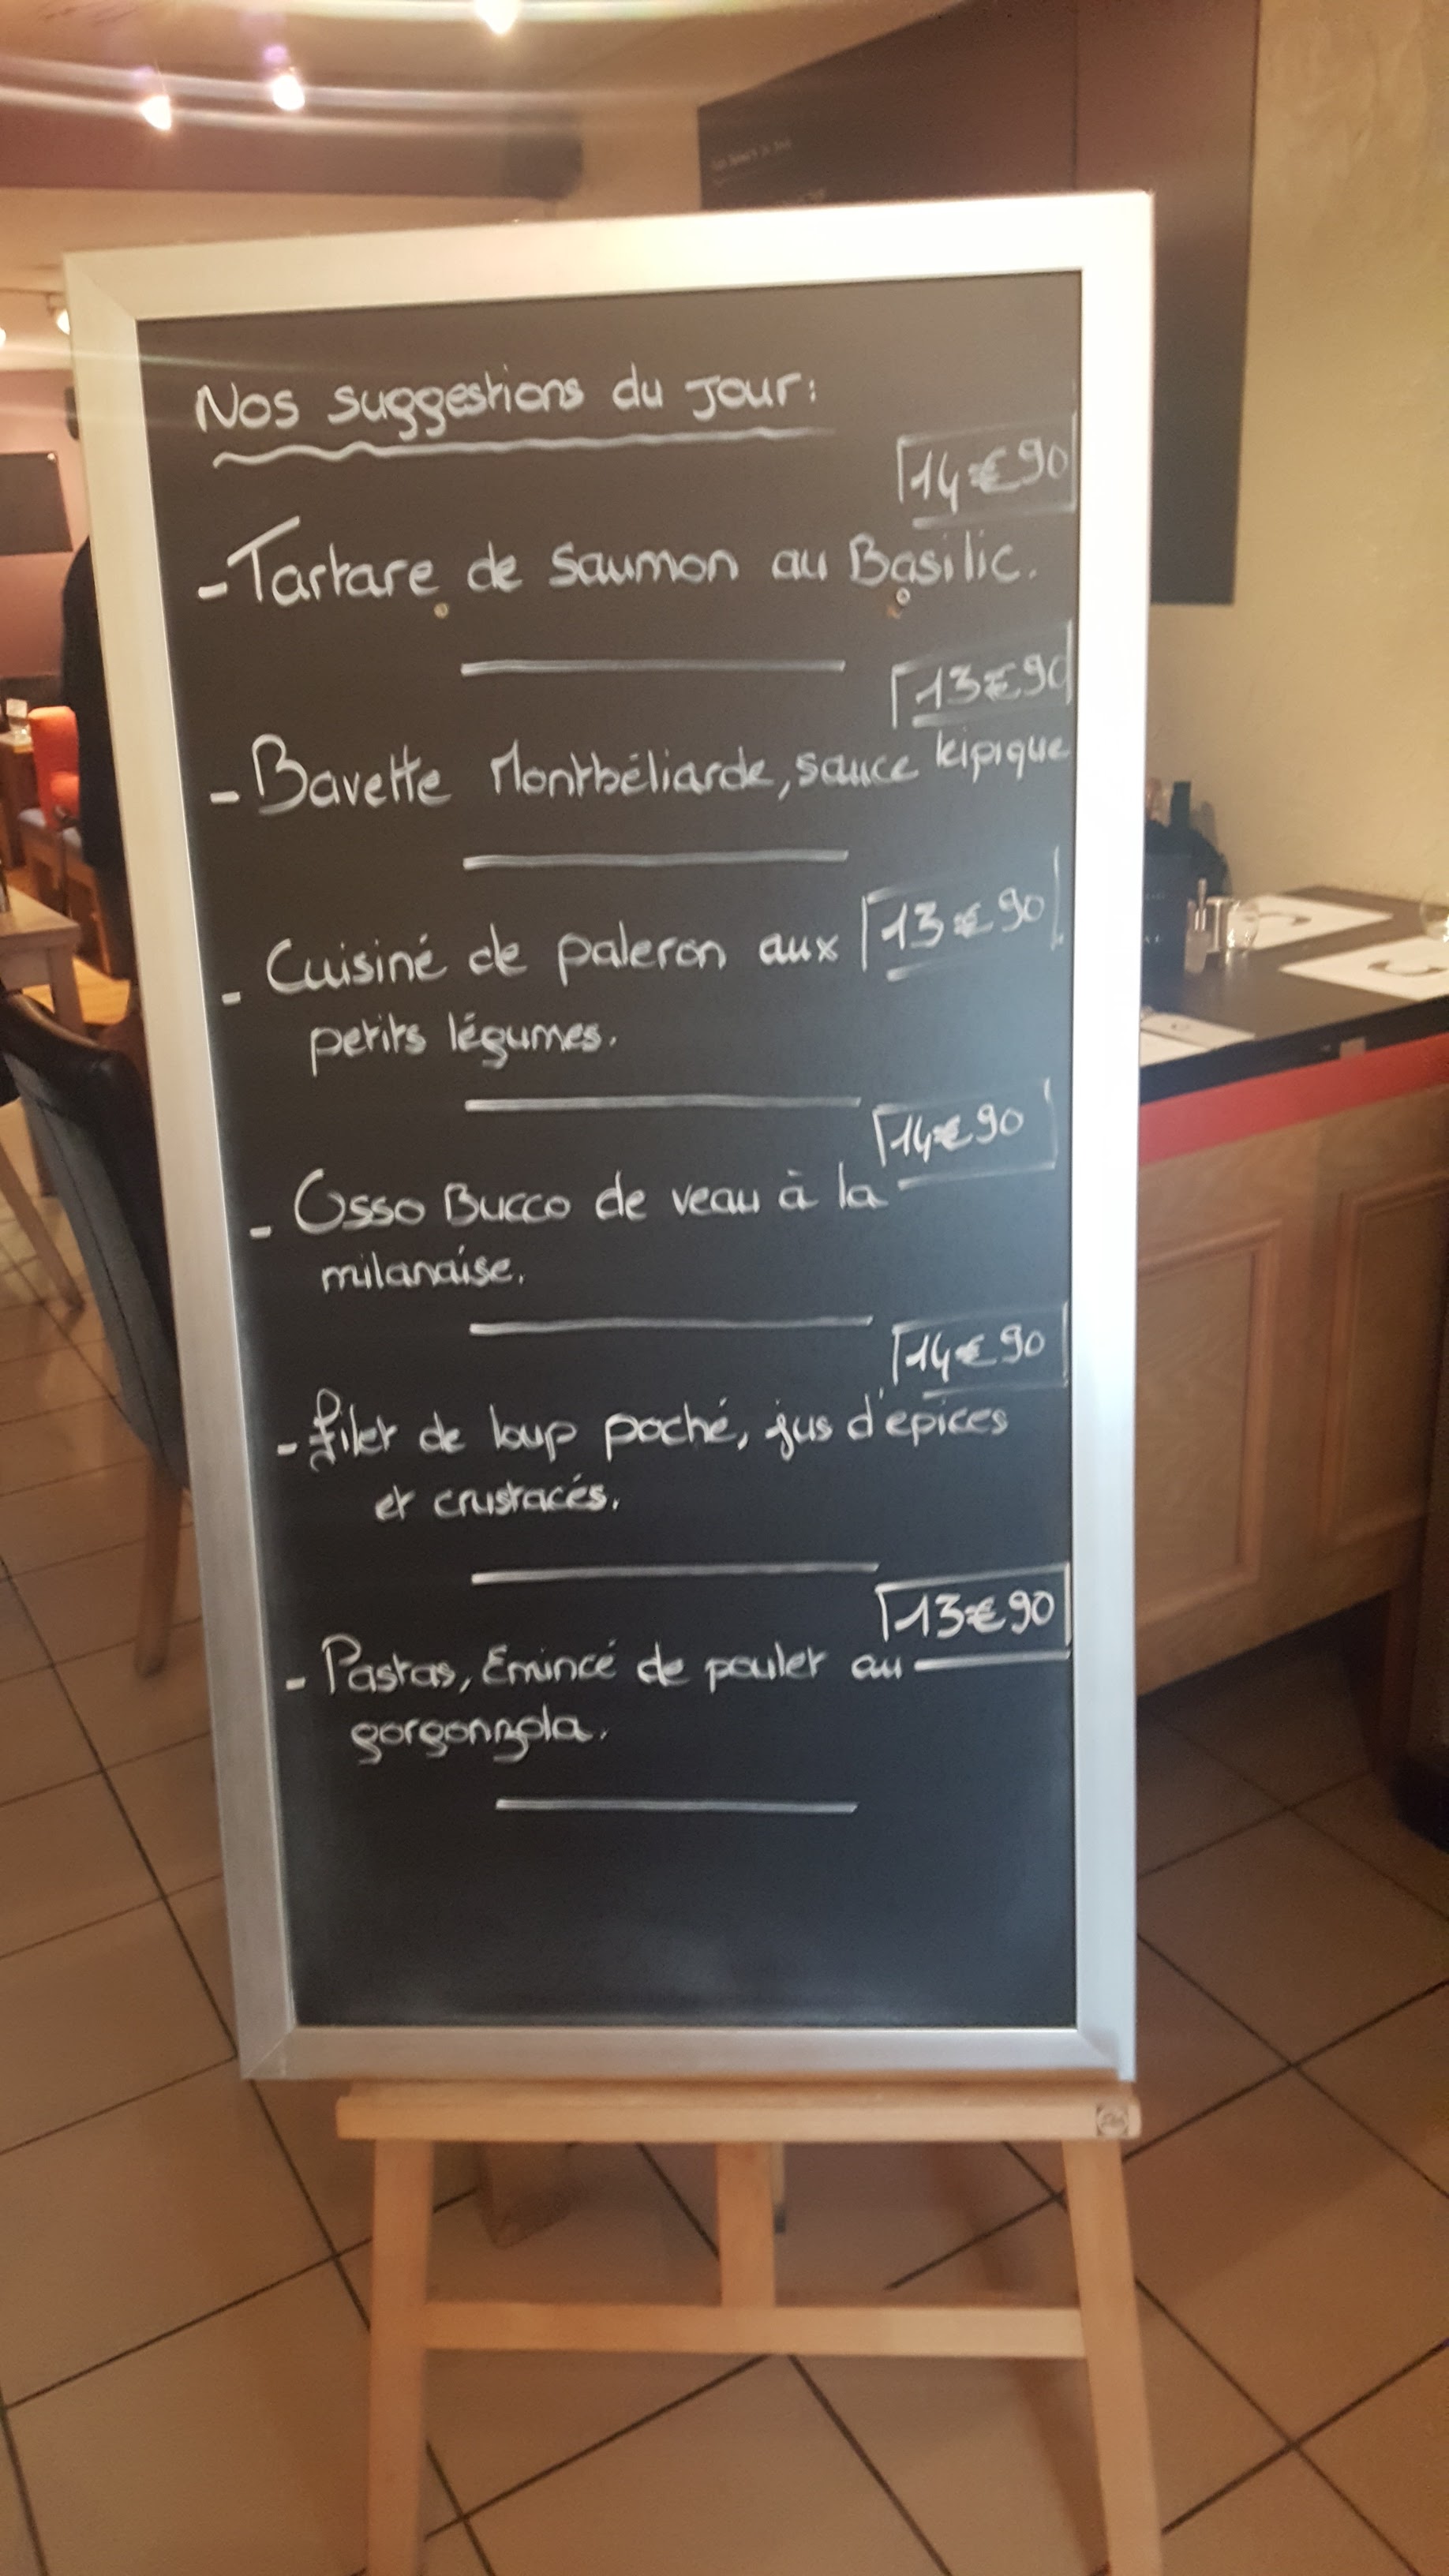 Nos suggestions du Jour:
14€90
- Tartare de Saumon au Basilic.
13€90
- Bavette Montbéliarde, sauce leipique
- Cuisiné de paleron aux 13€90
petits légumes.
14€90
- Osso Bucco de veau à la
milanaise.
14€90
- filet de loup poché, jus d'epices
et crustacés.
13€90
- Pastas, Emincé de poulet au
gorgonzola.